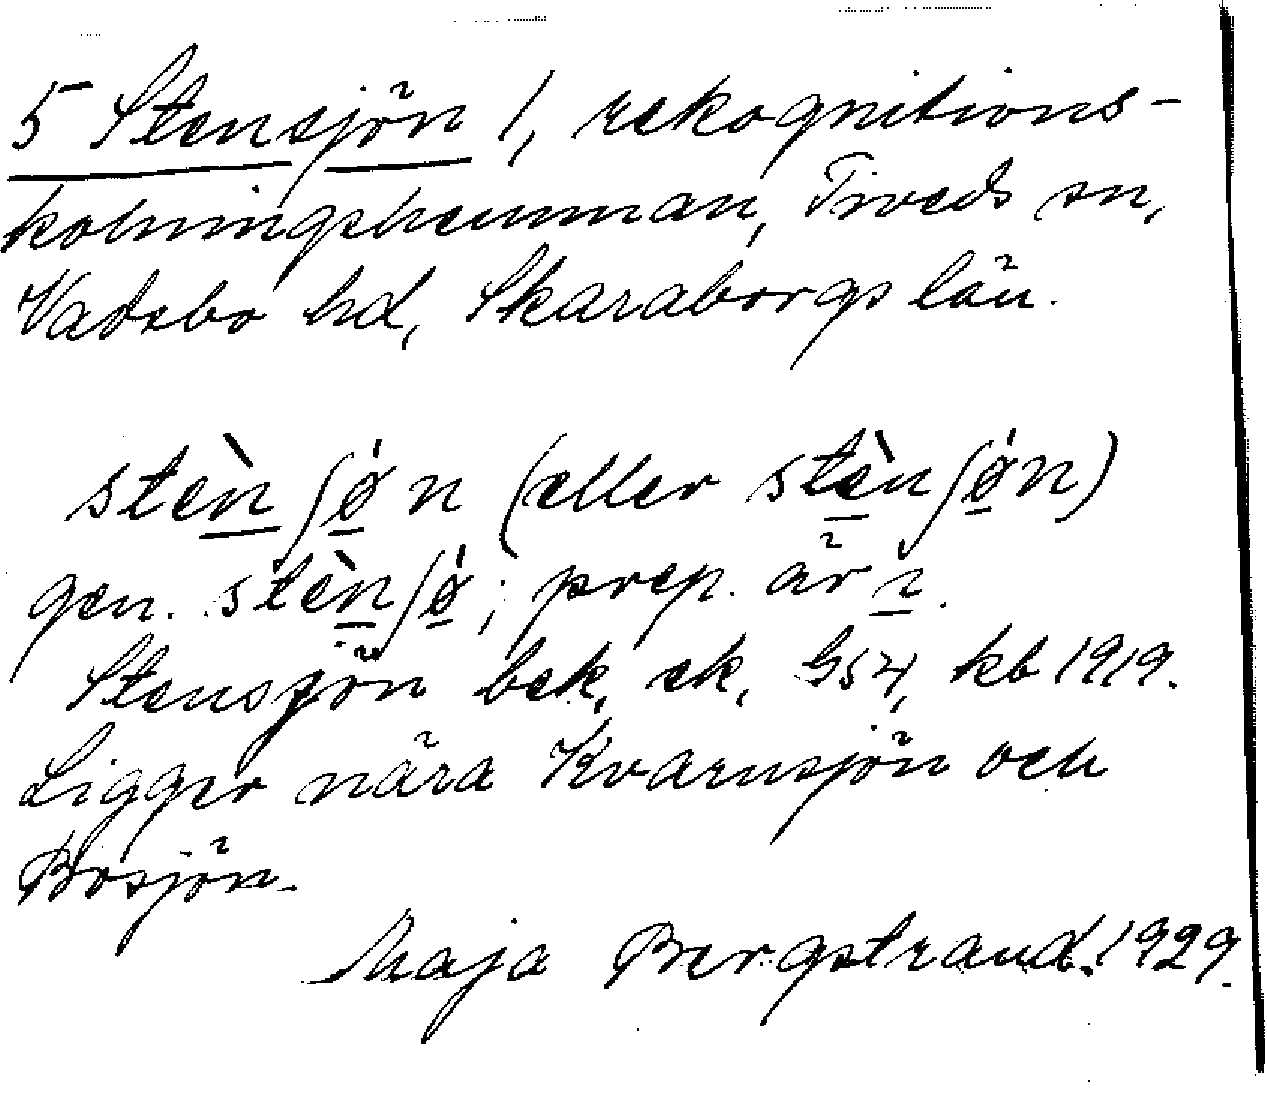 5 Stensjön 1, rekognitions-
kolningshemman, Tiveds sn,
Vadsbo hd, Skaraborgs län.
stèn ʃǿ n (eller stèn ʃǿn)
gen. stèn ʃǿ; prep. är i.
Stensjön bek, ek, GS4, kb 1919.
Ligger nära Kvarnsjön och
Bosjön.
Maja Bergstrand. 1929.